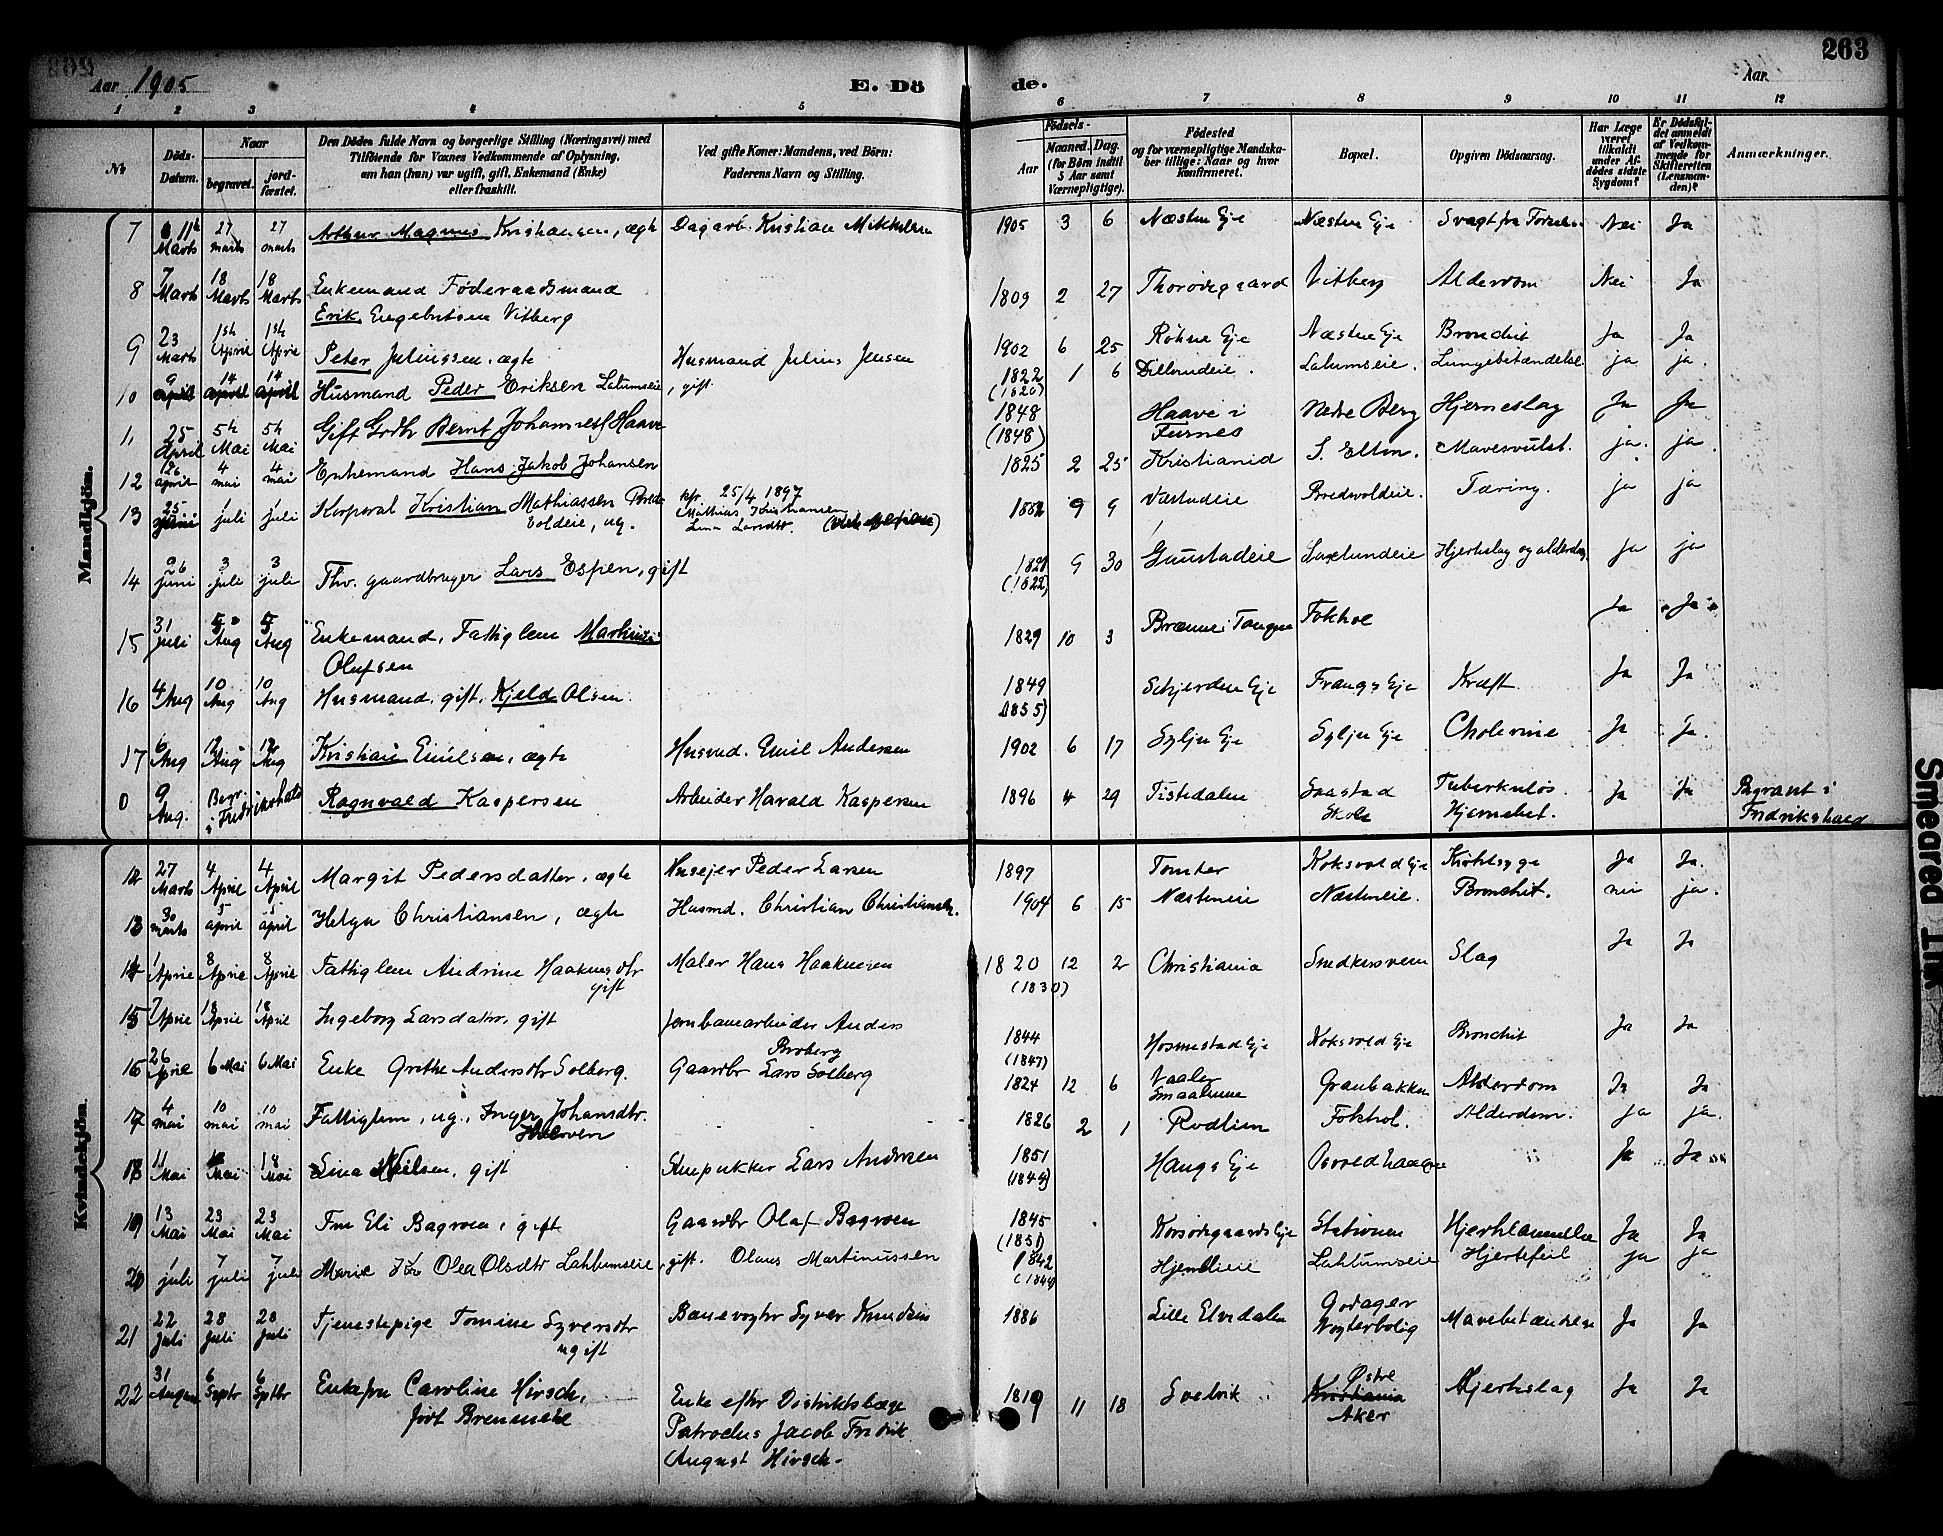 263
Aar 1905
E. Dö
de.
Aar
1 2 3 4 5 6 7 8 9 10 11 12
No
Døds-Datum.
Naar
begravet.
jord-fæstet.
Den Dødes fulde Navn og borgerlige Stilling (Næringsvei) med
Tilføiende for Voxnes Vedkommende af Oplysning,
om han (hun) var ugift, gift, Enkemand (Enke)
eller fraskilt.
Ved gifte Koner: Mandens, ved Børn:
Faderens Navn og Stilling.
Fødsels-
Aar
Maaned. Dag.
(for Børn indtil
5 Aar samt
Værnepligtige).
Fødested
og for værnepligtige Mandska-
ber tillige: Naar og hvor
konfirmeret.
Bopæl.
Opgiven Dødsaarsag.
Har Læge
været
tilkaldt
under Af-
dødes sidste
Sygdom?
Er Dødsfal-
det anmeldt
af Vedkom-
mende for
Skifteretten
(Lensman-
den)?
Anmærkninger.
Mandkjön.
7 11te Marts 27 marts 27 marts Arthur Magnus Kristiansen, ægte Dagarb. Kristian Mikkelsen 1905 3 6 Næsten Eje Næsten Eje Svagt fra Fødselen Nei Ja
8 7 Marts 18 Marts 18 Marts Enkemand Føderaadsmand
Erik Engebretsen Vitberg 1809 2 27 Thorødegaard Vitberg Alderdom Nei Ja
9 23 Marts 1ste April 1ste April Peter Juliussen, ægte Husmand Julius Jensen 1902 6 25 Røhne Eje Næsten Eje Bronchit Ja Ja
10 9 april 14 april 14 april Husmand Peder Eriksen Lalumseie, gift. 1822 (1820) 1 6 Dillerudeie. Lalumseie. Lungebetændelse ja ja.
11 25 April 5te Mai 5te Mai Gift Grdbr Bernt Johannes Haave 1848 (1848) Haave i Furnes Nedre Berg Hjerneslag Ja Ja
12 26 april 4 mai 4 mai Enkemand Hans Jakob Johansen 1825 2 25 Kristianid S. Elton. Mavesvulst. ja. ja.
13 25 juni 1 juli 1 juli Korporal Kristian Mathiassen Bredvoldeie, ug. kfr. 25/4 1897
Mathias Kristiansen
Lina Larsdtr. 1882 9 9 Væstadeie Bredvoldeie. Tæring. ja ja
14 26 juni 3 juli 3 juli Fhv. gaardbruger Lars Espen, gift 1821 (1822) 9 30 Gaustadeie Saxlundeie Hjerteslag og alderdom ja ja
15 31 juli 5 Aug 5 Aug Enkemand, Fattiglem Martinus
Olufsen 1829 10 3 Brænne i Tangen Fokhol Ja Ja
16 4 Aug 10 Aug 10 Aug Husmand, gift, Kjeld Olsen. 1849 (1855) Schjerden Eje Frangs Eje Kræft Ja Ja
17 6 Aug 12 Aug 12 Aug Kristian Emilsen, ægte Husmd. Emil Andersen 1902 6 17 Sylju Eje Sylju Eje Cholerine Ja Ja.
0 9 Aug. Begr. i Fredrikshald Ragnvald Kaspersen Arbeider Harald Kaspersen 1896 4 29 Tistedalen Saastad Skole Tuberkuløs Hjernebet. Ja Ja Begravet i
Fredrikshald
Kvindekjön.
12 27 Marts 4 April 4 April Margit Pedersdatter, ægte Husejer Peder Larsen 1897 Tomter Koksvold Eje Kirtelsyge Ja Ja.
13 30 marts 5 april 5 april Helga Christiansen, ægte Husmd. Christian Christiansen. 1904 6 15 Næstenie Næstenie. Bronchit. nei ja.
14 1 April 8 April 8 April Fattiglem Andrine Haakensdtr
gift Maler Hans Haakensen 1820 (1830) 12 2 Christiania Snedkersveen Slag Ja Ja
15 7 April 18 April 18 April Ingeborg Larsdatter, gift Jernbanearbeider Anders
Broberg 1844 (1847) Hosmestad Eje Koksvold Eje Bronchit Ja Ja
16 26 April 6 Mai 6 Mai Enke Grethe Andersdtr Solberg. Gaardbr Lars Solberg 1824 12 6 Vaaler Smaalenene Granbakken Alderdom Ja Ja
17 4 mai 10 mai 10 mai Fattiglem, ug., Inger Johansdtr. 1826 2 1 Rodlien Fokhol. Alderdom. ja ja.
18 11 Mai 18 Mai 18 Mai Lina Nielsen, gift Stenpukker Lars Andersen 1851 (1844) Haugs Eje Ja Ja
19 13 Mai 23 Mai 23 Mai Fru Eli Bagroen, gift Gaardbr Olaf Bagroen 1845 (1851) Korsødegaards Eje Stationen Hjertelammelse Ja Ja
20 1 juli 7 juli 7 juli Marie Olea Olsdtr Lahlumseie, gift. Olaus Martinussen 1842 (1844) Hjemlieie Lahlumseie Hjertefeil ja ja
21 22 Juli 28 Juli 28 Juli Tjenestepige Tomine Syversdtr
ugift Banevogter Syver Knudsen 1886 Lille Elvedalen Godager Vogterbolig Mavebetændelse Ja Ja
22 31 August 6 Septbr 6 Septbr Enkefru Caroline Hirsch,
født Brenmeke Enke efter Distriktslæge
Patroclus Jacob Fredrik
August Hirsch. 1819 11 18 Svelvik Kristiania Østre Aker Hjerteslag Ja Ja
Smeared Ink